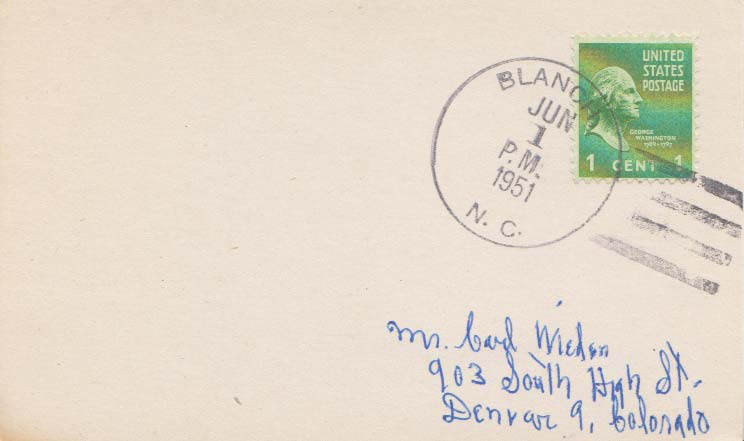 BLANCH
JUN
1
P.M.
1951
N. C.
UNITED
STATES
POSTAGE
GEORGE
WASHINGTON
1789-1797
1 CENT 1
Mr. Carl
903 South High St.
Denver 9, Colorado